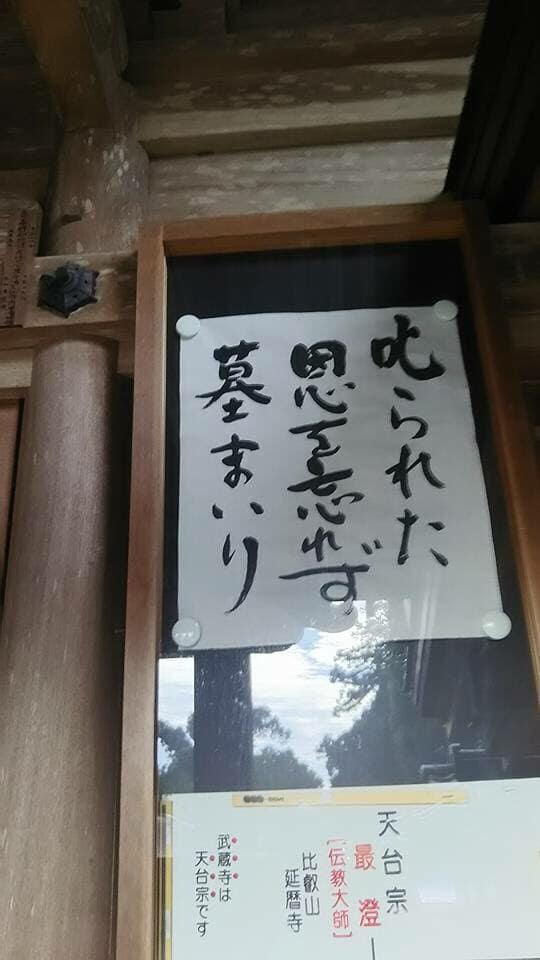 叱られた
恩を忘れず
墓まいり
天台宗
最澄
[伝教大師]
比叡山
延暦寺
武蔵寺は
天台宗です